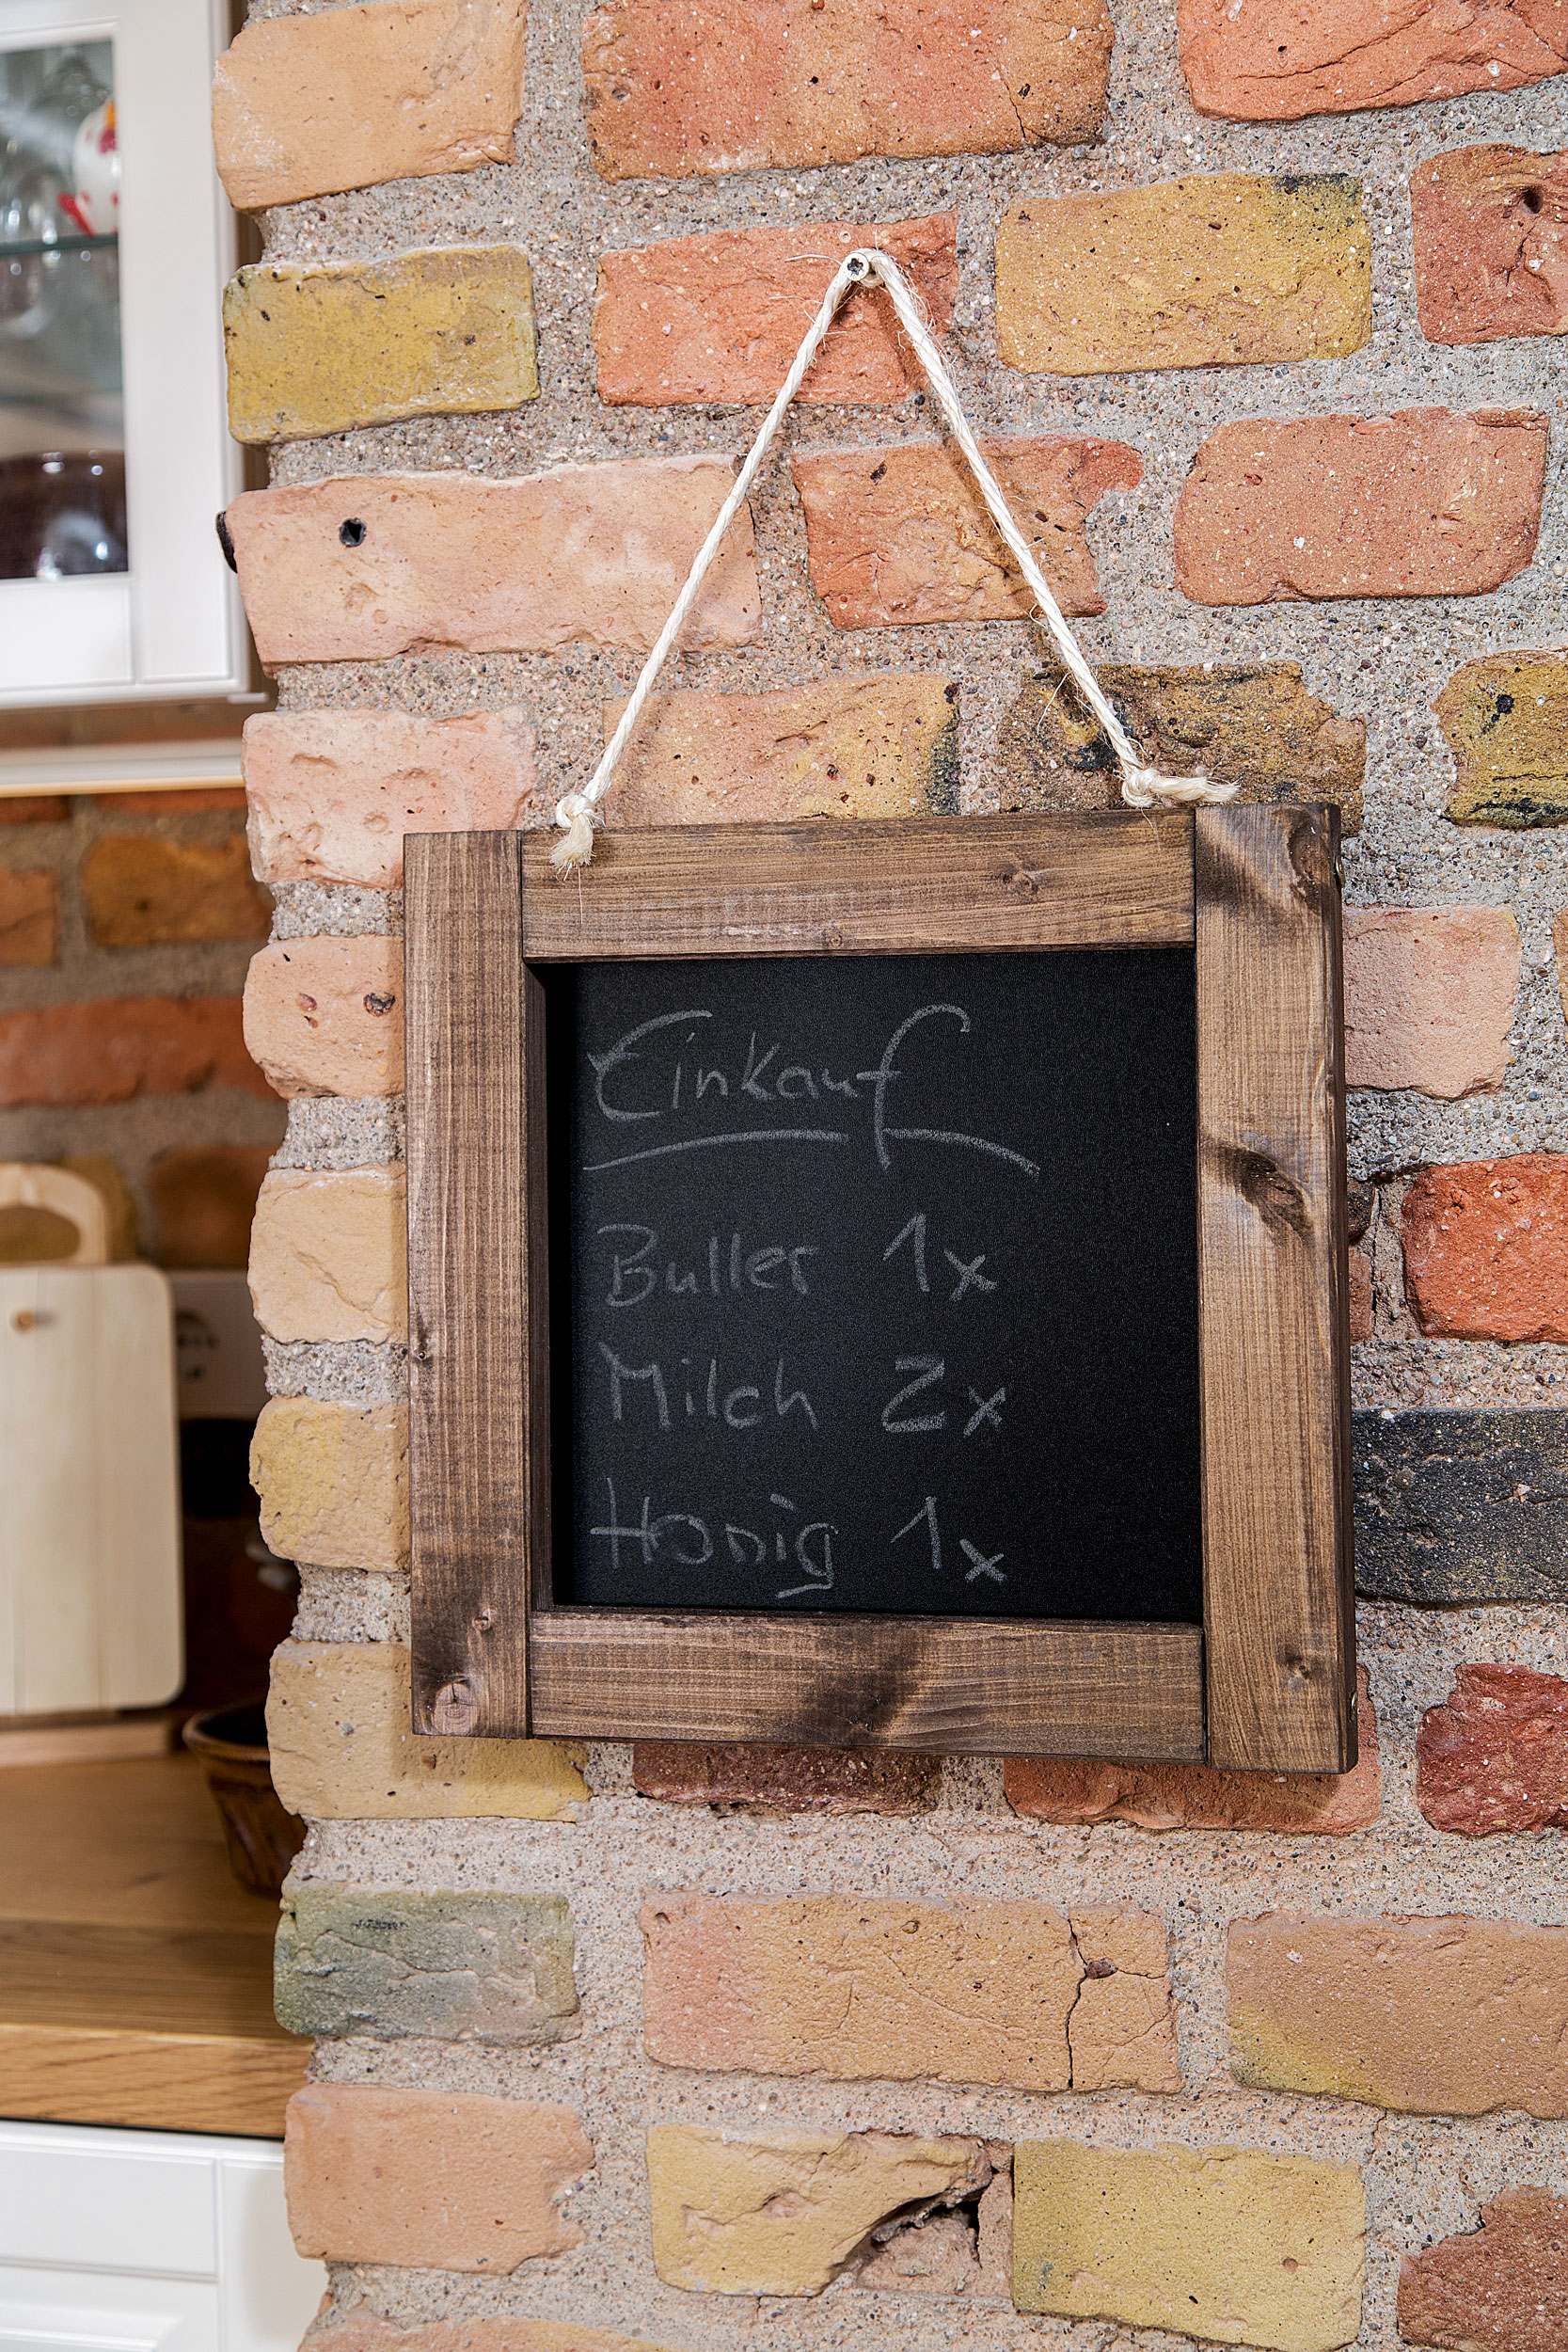 Einkauf
Butter 1x
Milch 2x
Honig 1x